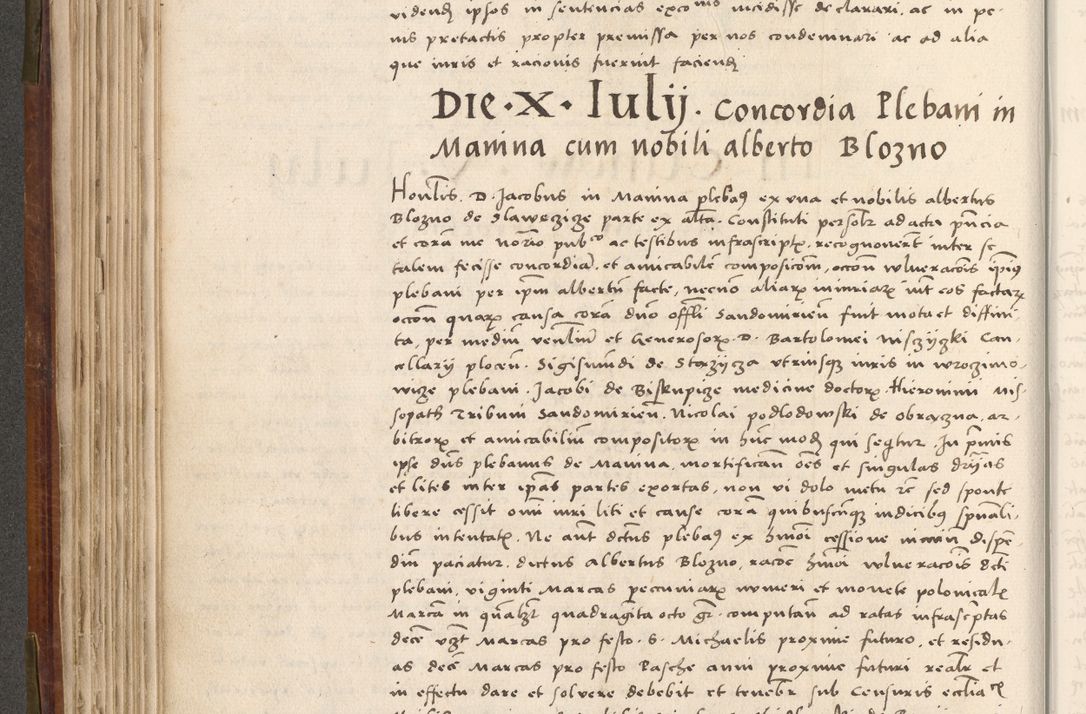 videndum ipsos in sentencias excōnis incidisse declarari. ac in pe-
nis pretactis propter premissa per nos condemnari ac ad alia
que iuris et racionis fuerint faciendū
DIE · X · Iulij . Concordia Plebani in
Manina cum nobili alberto Blozno
Honl̄is . D . Jacobus in Manina plebaꝰ ex vna et nobilis albertus
Blozno de Slawęczyze parte ex alt̄a . Constituti persolr̄ ad acta pn̄cia
et corā me not̄io pub^co ac testibus infrascriptꝭ . recognouer̄t inter se
talem fecisse concordiā . et amicabilē composicōm . occōn vulneracōis ip̄iꝰ
plebani per ip̄m albertū facte , necnō aliarꝝ iniuriarꝝ int̄ eos factarꝝ
occōn quarꝝ causa corā dn̄o offl̄i Sandomirien̄ fuit mota et diffini-
ta , per mediū ven̄liū et Generosorꝝ . D . Bartolomei Nisczyczki Can-
cellarij plocen̄ . Sigismūdi de Starzycza vtriusqꝫ iuris in wroczimo-
wicze plebani . Jacobi de Biskupicze medicine doctorꝝ . Hieronimi ms-
sopath Tribuni Sandomirien̄ . Nicolai podlodowski de obrączna , ar-
bitrorꝝ et amicabiliū compositorꝝ in hūc modū qui seqtur . In pr̄mis
ipse dn̄s plebanus de Manina , mortifican̄ oēs et singulas dr̄ijas
et lites inter ip̄as partes exortas , non vi dolo metu ꝛc̄ sed sponte
libere cessit om̄i iuri liti et cause corā quibuscūqꝫ iudicibꝰ spūali-
bus intentatꝭ . Ne aūt dc̄tus plebaꝰ ex hm̄oi cessione dispē-
diū paciatur . dictus albertus Blozno , racōe hm̄oi vulneracōis dc̄ti
plebani , viginti Marcas pecuniarꝝ numeri et monete polonicalꝭ
Marcā in qn̄alꝫ quadragīta octo gr̄ . computan̄ ad ratas infrasc̄ptas
decē vꝫt Marcas pro festo . S . Michaelis proxime futuro , et residu-
as decē Marcas pro festo Pasche anni proxime futuri realr̄ et
in effectu dare et soluere debebit et tenebr̄ sub Censuris eccl̄iaꝭ